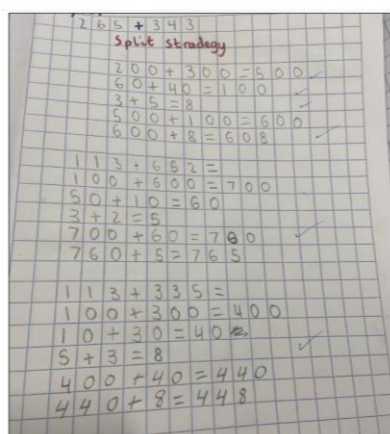 265+343
Split Stradegy
200+300=500
60+40=100
3+5=8
500+100=600
600+8=608
113+652=
100+600=700
50+10=60
3+2=5
700+60=760
760+5=765
113+335=
100+300=400
10+30=40
5+3=8
400+40=440
440+8=448